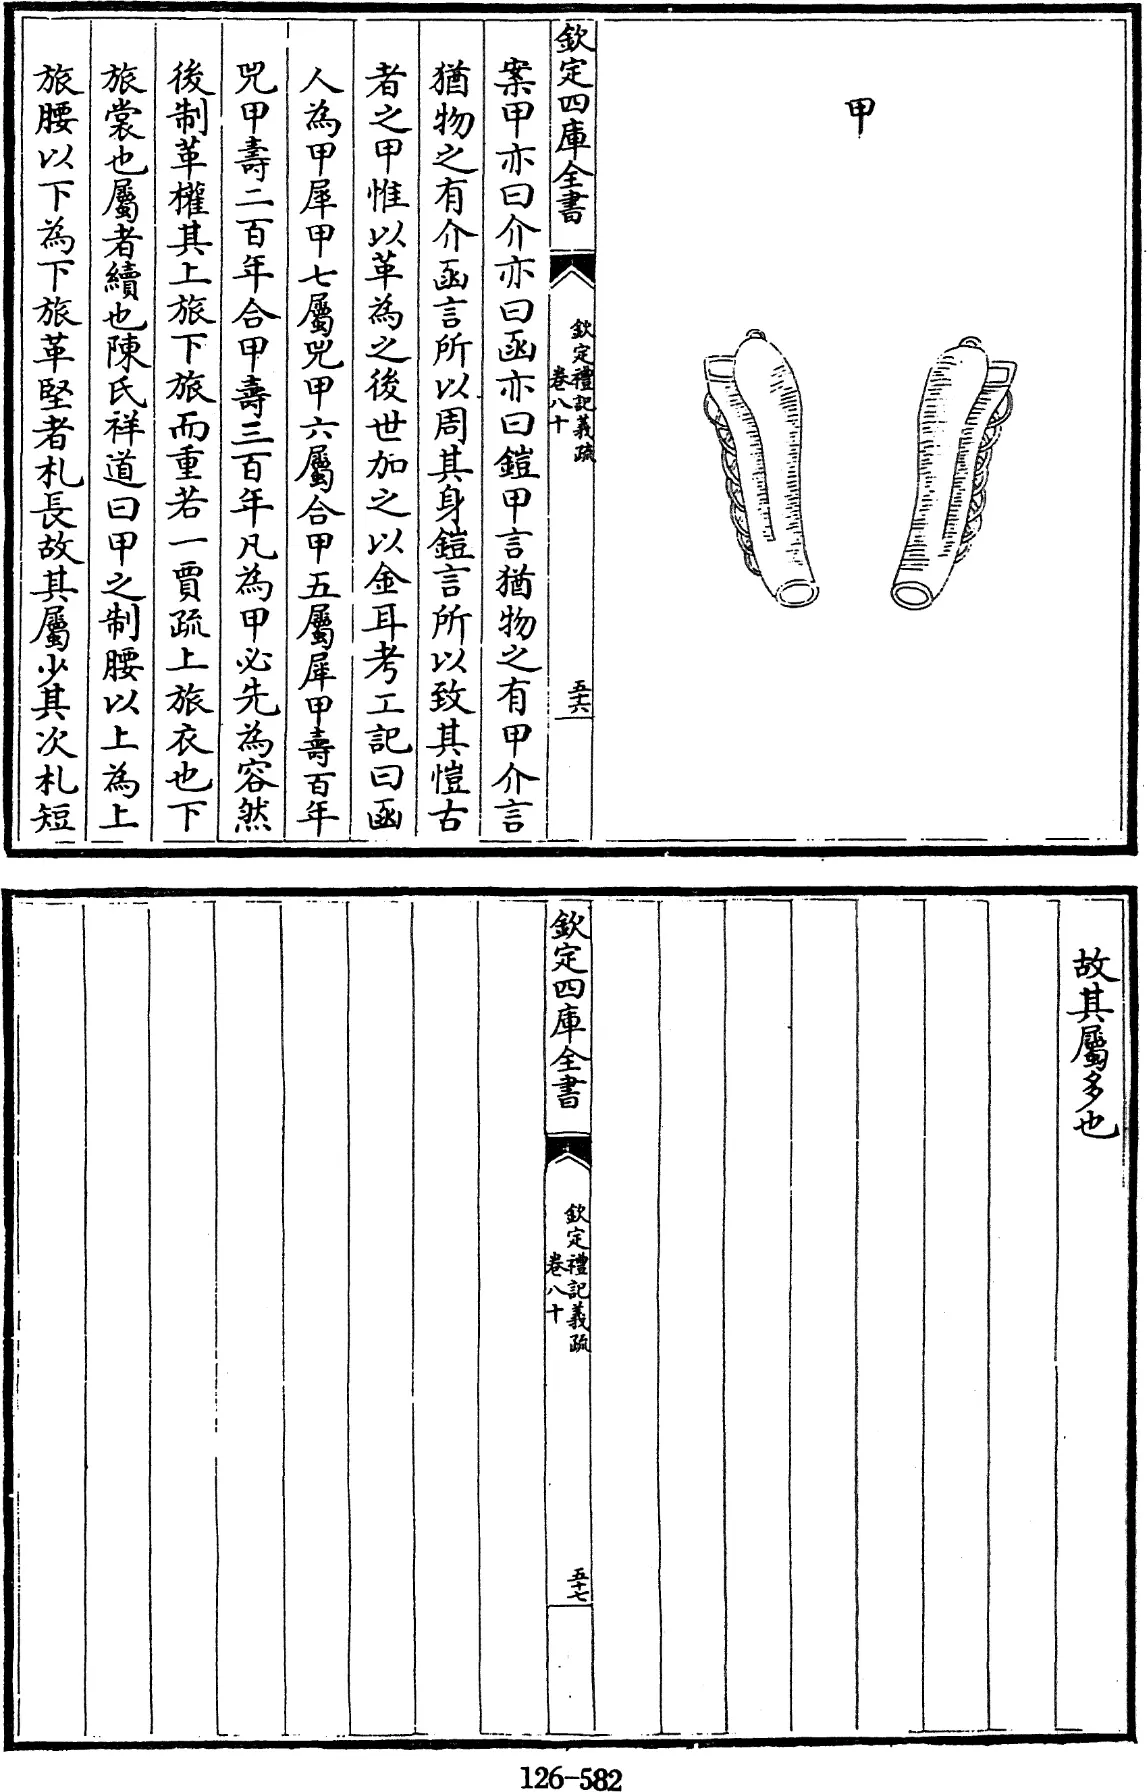 甲
欽定四庫全書
欽定禮記義疏
卷八十
五十六
案甲亦曰介亦曰函亦曰鎧甲言猶物之有甲介言
猶物之有介函言所以周其身鎧言所以致其愷古
者之甲惟以革為之後世加之以金耳考工記曰函
人為甲犀甲七屬兕甲六屬合甲五屬犀甲壽百年
兕甲壽二百年合甲壽三百年凡為甲必先為容然
後制革權其上旅下旅而重若一賈疏上旅衣也下
旅裳也屬者續也陳氏祥道曰甲之制腰以上為上
旅腰以下為下旅革堅者札長故其屬少其次札短
故其屬多也
欽定四庫全書
欽定禮記義疏
卷八十
五十七
126-582